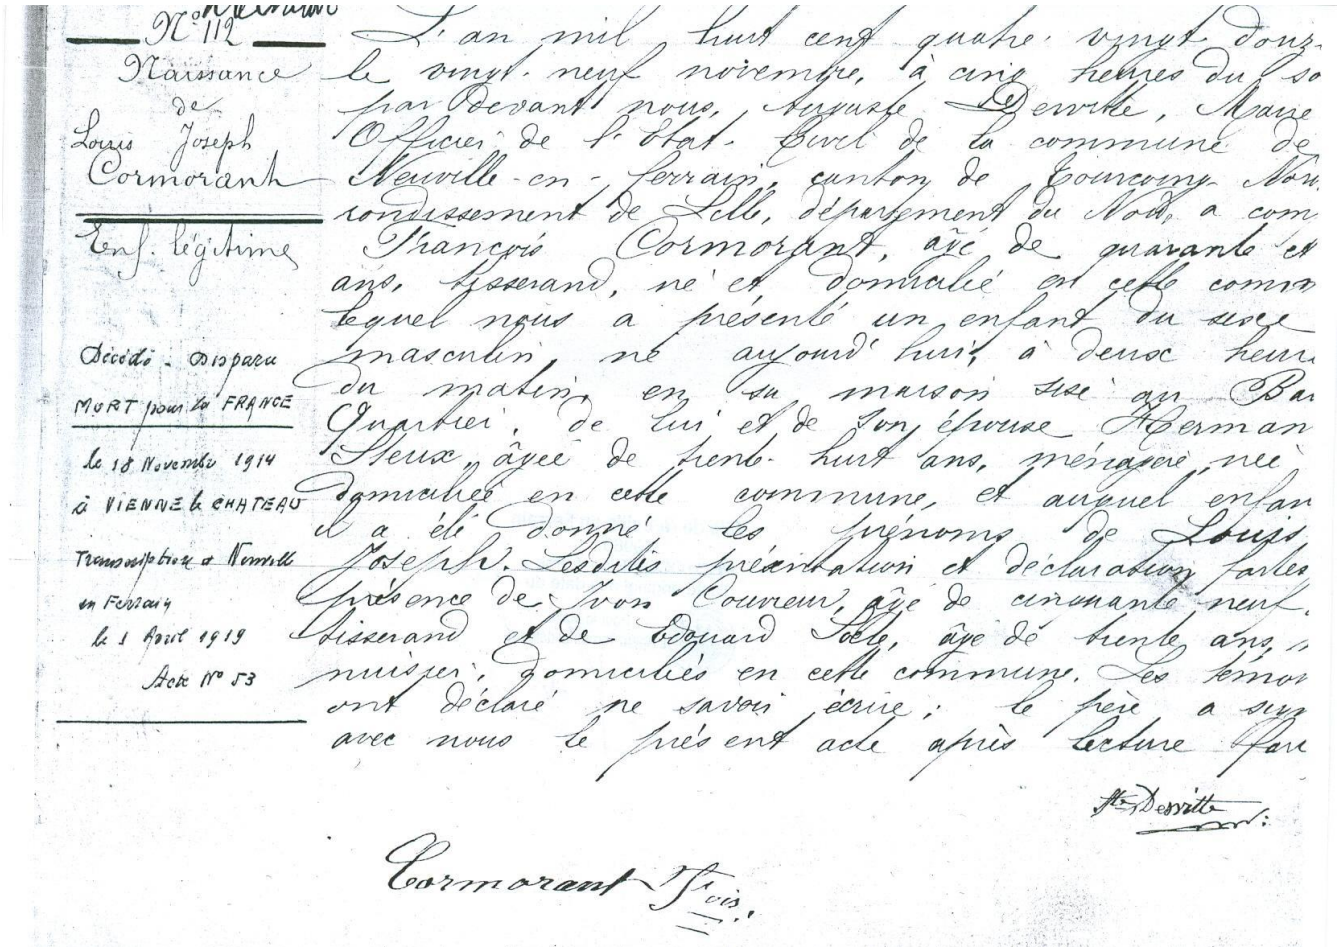 N° 112
Naissance
de
Louis Joseph
Cormorant
Enf. légitime
Décédé - Disparu
MORT pour la FRANCE
le 18 Novembre 1914
à VIENNE le CHATEAU
Transcription à Neuville
en Ferrain
le 1 Avril 1919
Acte N° 53
L'an mil huit cent quatre-vingt douz
le vingt-neuf novembre, à cinq heures du so
par devant nous, Auguste Dervitte, Maire
Officier de l'Etat-Civil de la commune de
Neuville-en-ferrain, canton de Tourcoing-Nor
rondissement de Lille, département du Nord, a com
François Cormorant, âgé de quarante et
ans, tisserand, né et domicilié en cette comm
lequel nous a présenté un enfant du sexe
masculin, né aujourd'hui, à deux heure
du matin, en sa maison sise au
Quartier, de lui et de son épouse Herman
Steux, âgée de trente-huit ans, ménagère, née
domiciliée en cette commune, et auquel enfan
il a été donné les prénoms de Louis
Joseph. Lesdites présentation et déclaration faites
présence de Couvreur, âgé de cinquante neuf
tisserand et de Edouard âgé de trente ans,
nuisier, domiciliés en cette commune. Les témoi
ont déclaré ne savoir écrire; le père a sign
avec nous le présent acte après lecture
Dervitte
Cormorant Fois